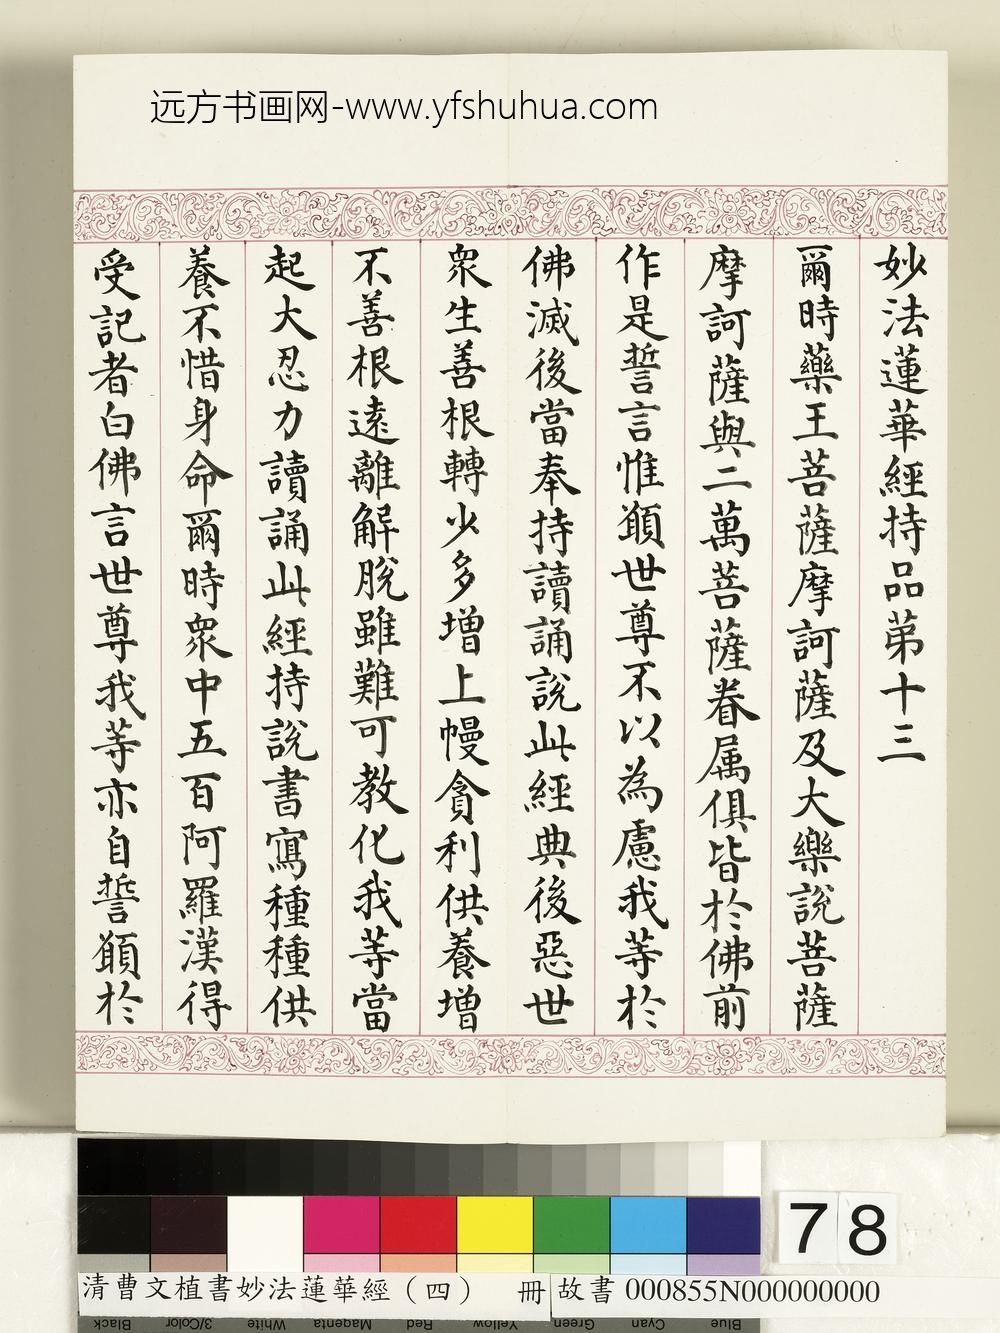 远方书画网-www.yfshuhua.com
妙法蓮華經持品第十三
爾時藥王菩薩摩訶薩及大樂說菩薩
摩訶薩與二萬菩薩眷属俱皆於佛前
作是誓言惟願世尊不以為慮我等於
佛滅後當奉持讀誦說此經典後惡世
眾生善根轉少多增上慢貪利供養增
不善根遠離解脫雖難可教化我等當
起大忍力讀誦此經持說書寫種種供
養不惜身命爾時眾中五百阿羅漢得
受記者白佛言世尊我等亦自誓願於
78
清曹文植書妙法蓮華經（四） 冊 故書 000855N000000000
Black 3/Color White Magenta Red Yellow Green Cyan Blue